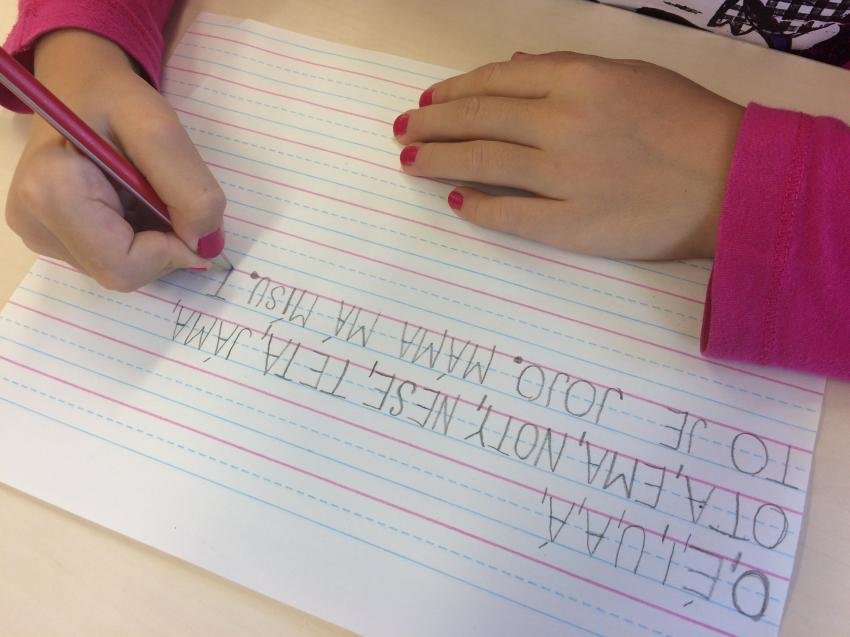 O,É,I,U,A,Á,
OTA, EMA, NOTY, NESE, TETA, JÁMA,
TO JE JOJO. MÁMA MÁ MISU. T